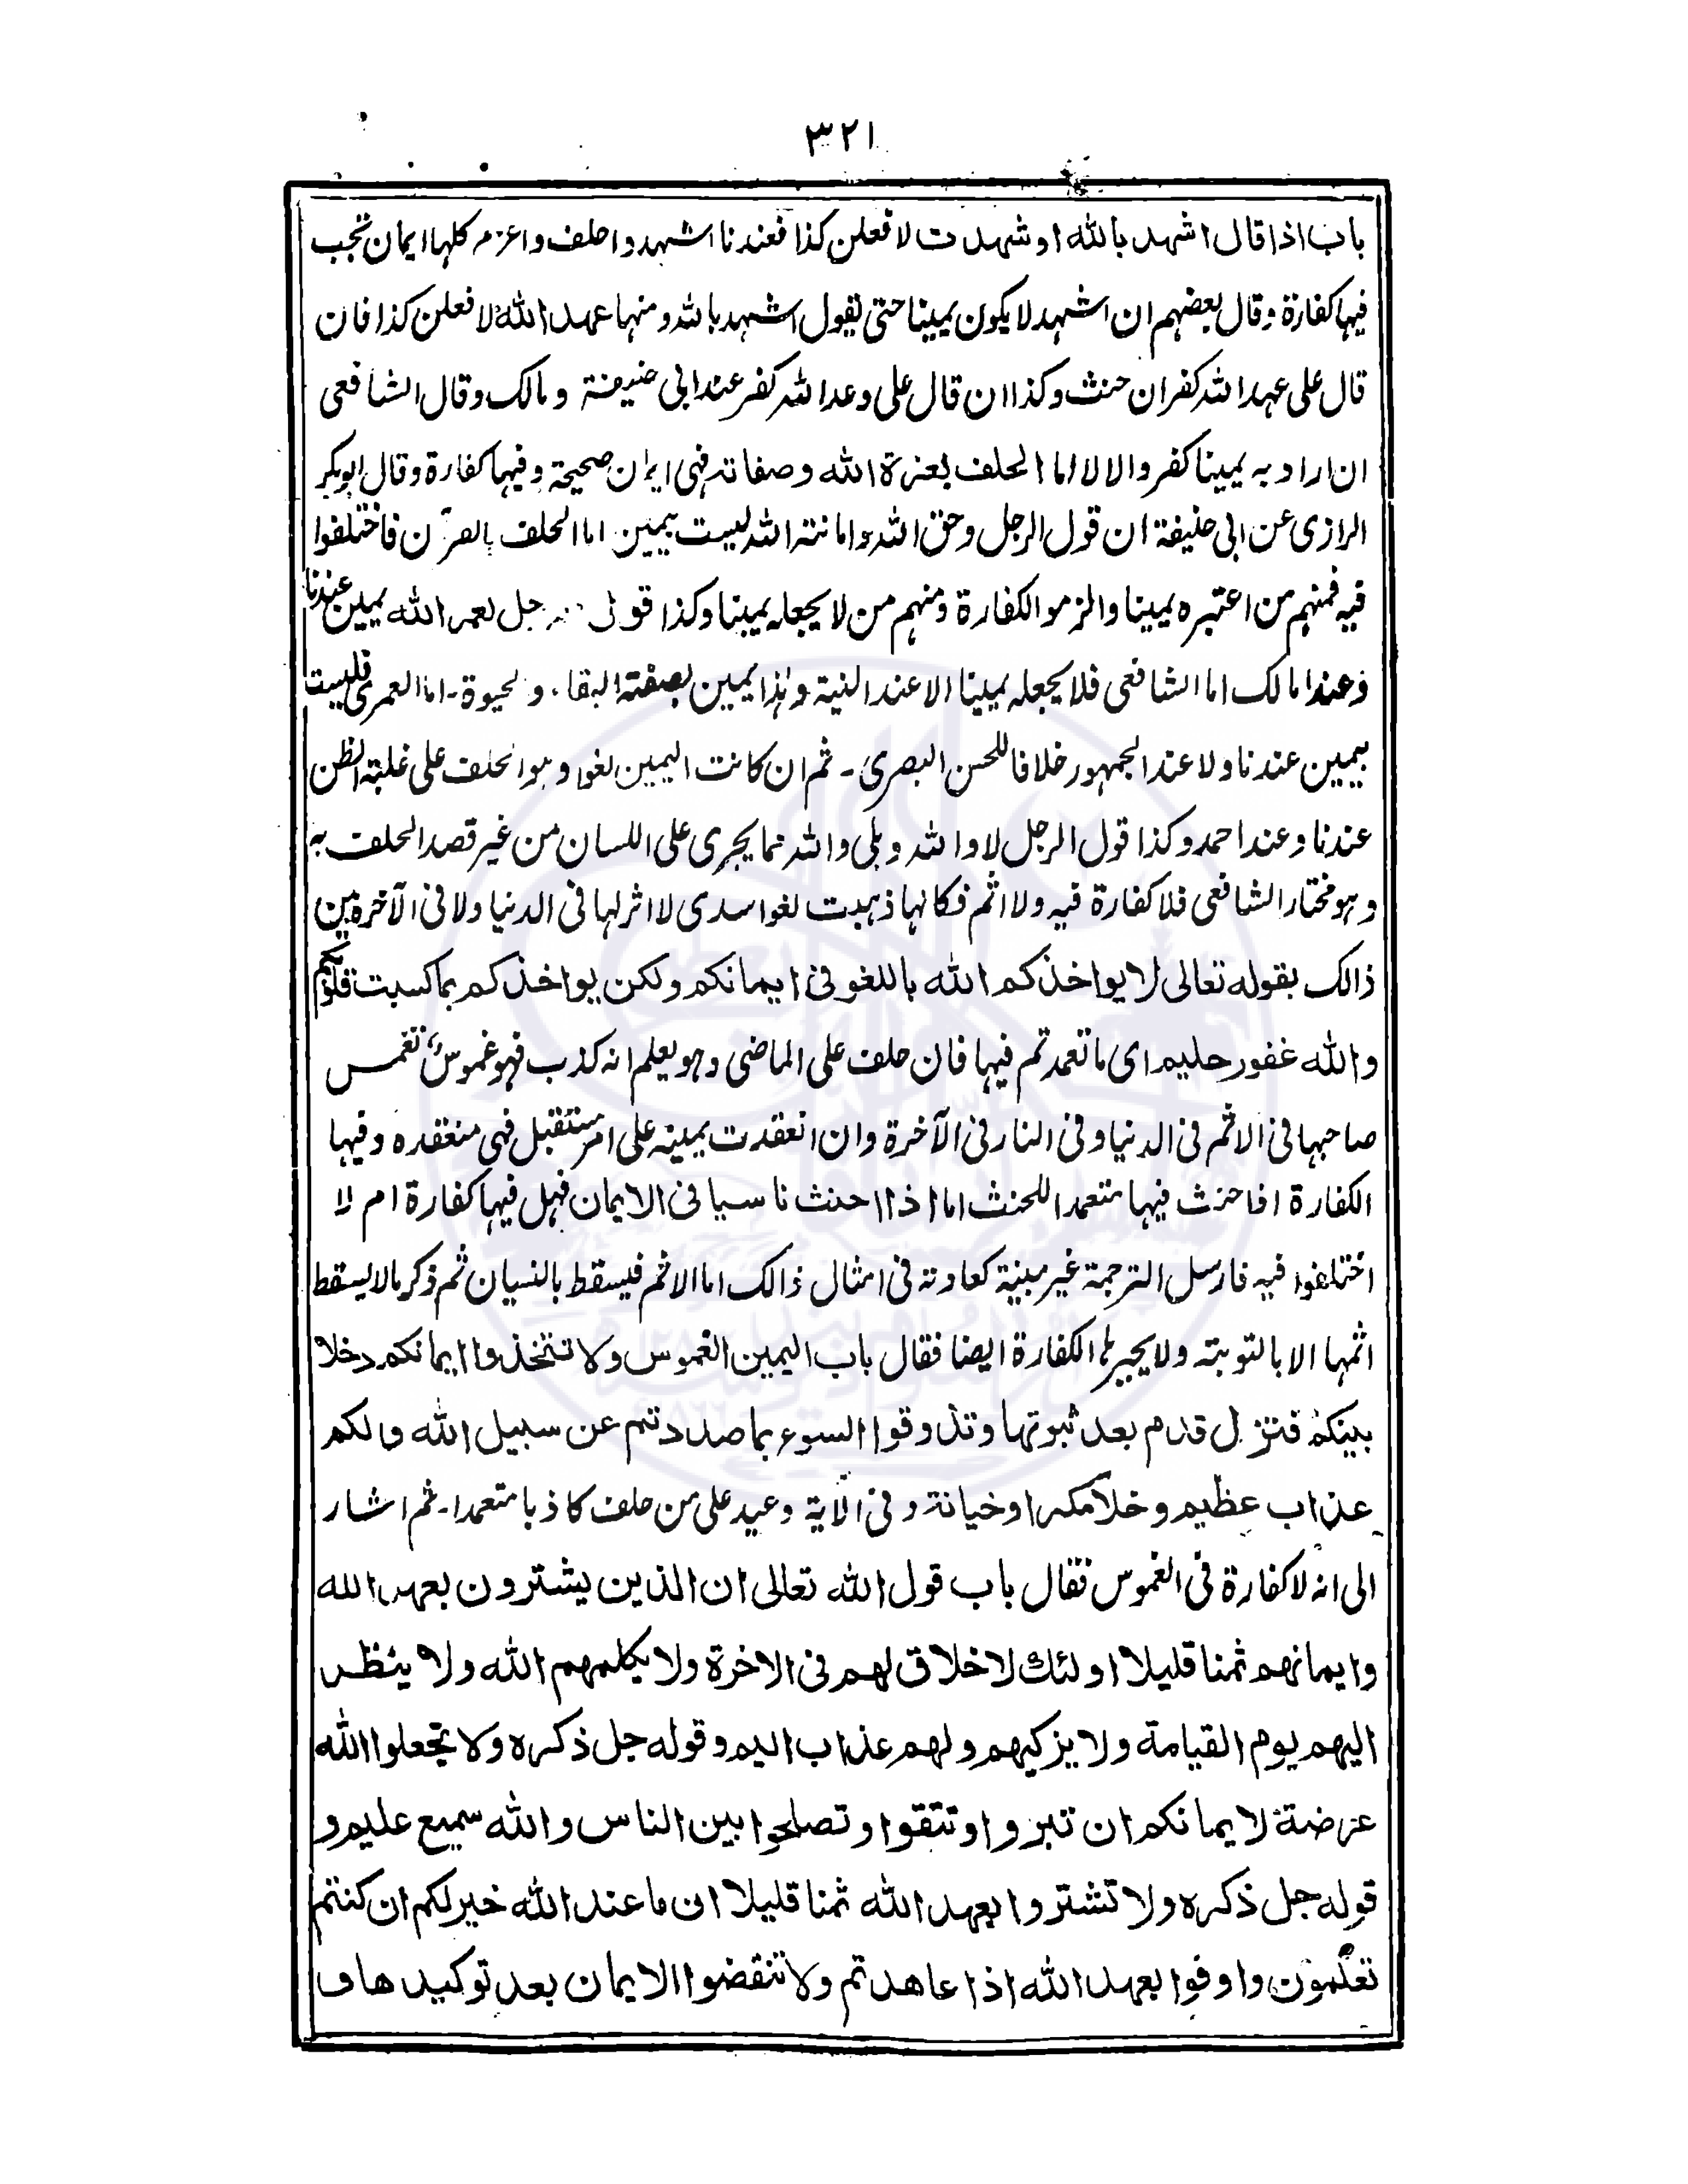 ٣٢١
باب اذا قال اشهد بالله او شهدت لا فعلن كذا فعندنا اشهد واحلف واعزم كلها ايمان تجب
فيها كفارة وقال بعضهم ان اشهد لا يكون يمينا حتى يقول اشهد بالله ومنها عهد الله لا فعلن كذا فان
قال على عهد الله كفر ان حنث وكذا ان قال على وعد الله كفر عند ابى حنيفة و مالك وقال الشافعى
ان اراد به يمينا كفر والا لا اما الحلف بعزة الله وصفاته فهى ايمان صحيحة وفيها كفارة وقال ابو بكر
الرازى عن ابى حنيفة ان قول الرجل وحق الله وامانته الله ليست بيمين اما الحلف بالقرآن فاختلفوا
فيه فمنهم من اعتبره يمينا والزموا الكفارة ومنهم من لا يجعله يمينا وكذا قول رجل لعمر الله يمين عندنا
وعند مالك اما الشافعى فلا يجعله يمينا الا عند النية وهذا يمين بصفته البقاء والحيوة ـ اما العمرى فليست
بيمين عندنا ولا عند الجمهور خلافا للحسن البصرى ـ ثم ان كانت اليمين لغوا وهو الحلف على غلبته الظن
عندنا وعند احمد وكذا قول الرجل لا والله وبلى والله مما يجرى على اللسان من غير قصد الحلف به
وهو مختار الشافعى فلا كفارة فيه ولا اثم فكانها ذهبت لغوا سدى لا اثر لها فى الدنيا ولا فى الآخرة بين
ذالك بقوله تعالى لا يواخذكم الله باللغو فى ايمانكم ولكن يواخذكم بما كسبت قلوبكم
والله غفور حليم اى ما تعمدتم فيها فان حلف على الماضى وهو يعلم انه كذب فهو غموس تغمس
صاحبها فى الاثم فى الدنيا وفى النار فى الآخرة وان انعقدت يمينه على امر مستقبل فهى منعقده وفيها
الكفارة اذا حنث فيها متعمدا للحنث اما اذا احنث ناسيا فى الايمان فهل فيها كفارة ام لا
اختلفوا فيه فارسل الترجمة غير مبينة كعادته فى امثال ذالك اما الاثم فيسقط بالنسيان ثم ذكر ما لا يسقط
اثمها الا بالتوبته ولا يجبرها الكفارة ايضا فقال باب اليمين الغموس ولا تتخذوا ايمانكم دخلا
بينكم فتزل قدم بعد ثبوتها وتذوقوا السوء بما صددتم عن سبيل الله ولكم
عذاب عظيم دخلا مكرا وخيانة وفى الآية وعيد على من حلف كاذبا متعمدا ـ ثم اشار
الى انه لا كفارة فى الغموس فقال باب قول الله تعالى ان الذين يشترون بعهد الله
وايمانهم ثمنا قليلا اولئك لا خلاق لهم فى الاخرة ولا يكلمهم الله ولا ينظر
اليهم يوم القيامة ولا يزكيهم ولهم عذاب اليم وقوله جل ذكره ولا تجعلوا الله
عرضة لايمانكم ان تبروا وتتقوا وتصلحوا بين الناس والله سميع عليم و
قوله جل ذكره ولا تشتروا بعهد الله ثمنا قليلا ان ما عند الله خير لكم ان كنتم
تعلمون واوفوا بعهد الله اذا عاهدتم ولا تنقضوا الايمان بعد توكيدها و